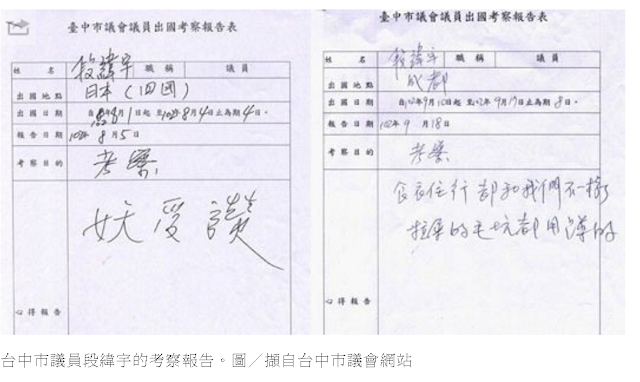 臺中市議會議員出國考察報告表
姓名 段緯宇 職稱 議員
出國地點 日本(四國)
出國日期 自 8月1日起至102年8月4日止為期4日。
報告日期 102年8月5日
考察目的 考察
心得報告 妖受讚
臺中市議會議員出國考察報告表
姓名 段緯宇 職稱 議員
出國地點 成都
出國日期 自102年9月10日起至102年9月17日止為期8日。
報告日期 102年9月18日
考察目的 考察
心得報告
食衣住行都和我們不一樣
拉屎的毛坑都用
台中市議員段緯宇的考察報告。圖/擷自台中市議會網站